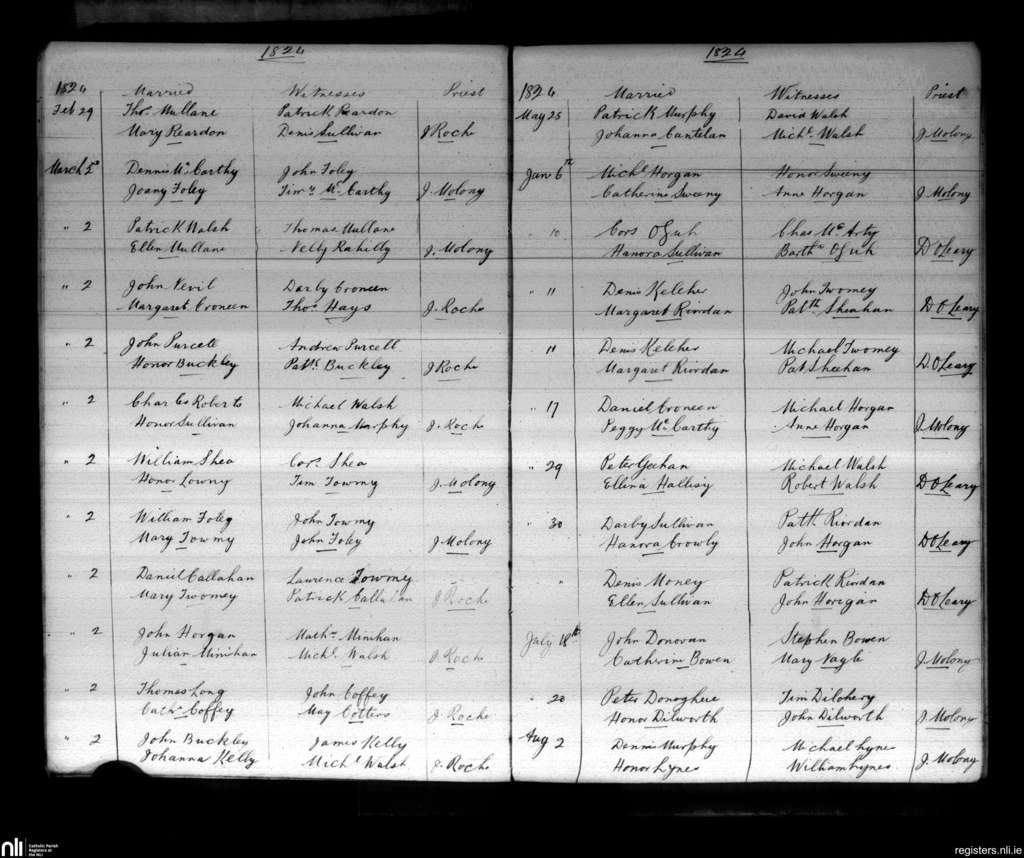 1824
1824 Married Witnesses Priest
Feb 29 Thos. Mullane Patrick Reardon
Mary Reardon Denis Sullivan J Roche
March 1st Dennis Mc Carthy John Foley
Joany Foley Timy. Mc Carthy J. Molony
" 2 Patrick Walsh Thomas Mullane
Ellen Mullane Nelly Rahilly J. Molony
" 2 John Nevil Darby Croneen
Margaret Croneen Thos. Hays J. Roche
" 2 John Purcell Andrew Purcell
Honor Buckley Pattk. Buckley J Roche
" 2 Charles Roberts Michael Walsh
Honor Sullivan Johanna Murphy J. Roche
" 2 William Shea Cors. Shea
Honor Tim Towmy J. Molony
" 2 William Foley John Towmy
Mary Towmy John Foley J Molony
" 2 Daniel Callahan Laurence Towmy
Mary Twomey Patrick Callahan J Roche
" 2 John Horgan Mathw. Minihan
Julian Minihan Michl. Walsh J. Roche
" 2 Thomas Long John Coffey
Cathe. Coffey May Cotters J. Roche
" 2 John Buckley James Kelly
Johanna Kelly Michl. Walsh J. Roche
1824
1824 Married Witnesses Priest
May 25 Patrick Murphy David Walsh
Johanna Cantelan Michl. Walsh J Molony
Jun 6th Michl. Horgan Honor Sweeny
Catherine Sweeny Anne Horgan J Molony
" 10 Cors Chas Mc Arty
Hanora Sullivan Barthw D O Leary
" 11 Denis Kelcher John Twomey
Margaret Riordan Patth. Sheahan D O Leary
11 Denis Kelcher Michael Twomey
Margaret Riordan Pat Sheehan D. O Leary
" 17 Daniel Croneen Michael Horgan
Peggy Mc Carthy Anne Horgan J. Molony
" 29 Peter Geehan Michael Walsh
Ellena Hallisy Robert Walsh D O Leary
" 30 Darby Sullivan Pattk. Riordan
Hanora Crowly John Horgan D O Leary
" Denis Money Patrick Riordan
Ellen Sullivan John Horrigan D O Leary
July 18th John Donovan Stephen Bowen
Catherin Bowen Mary Nagle J. Molony
" 20 Peter Donoghue Tim Dilohery
Honor Dilworth John Dilworth J Molony
Aug 2 Dennis Murphy Michael Lynes
Honor Lynes William Lynes J. Molony
nli Catholic Parish
Registers at
the NLI
registers.nli.ie